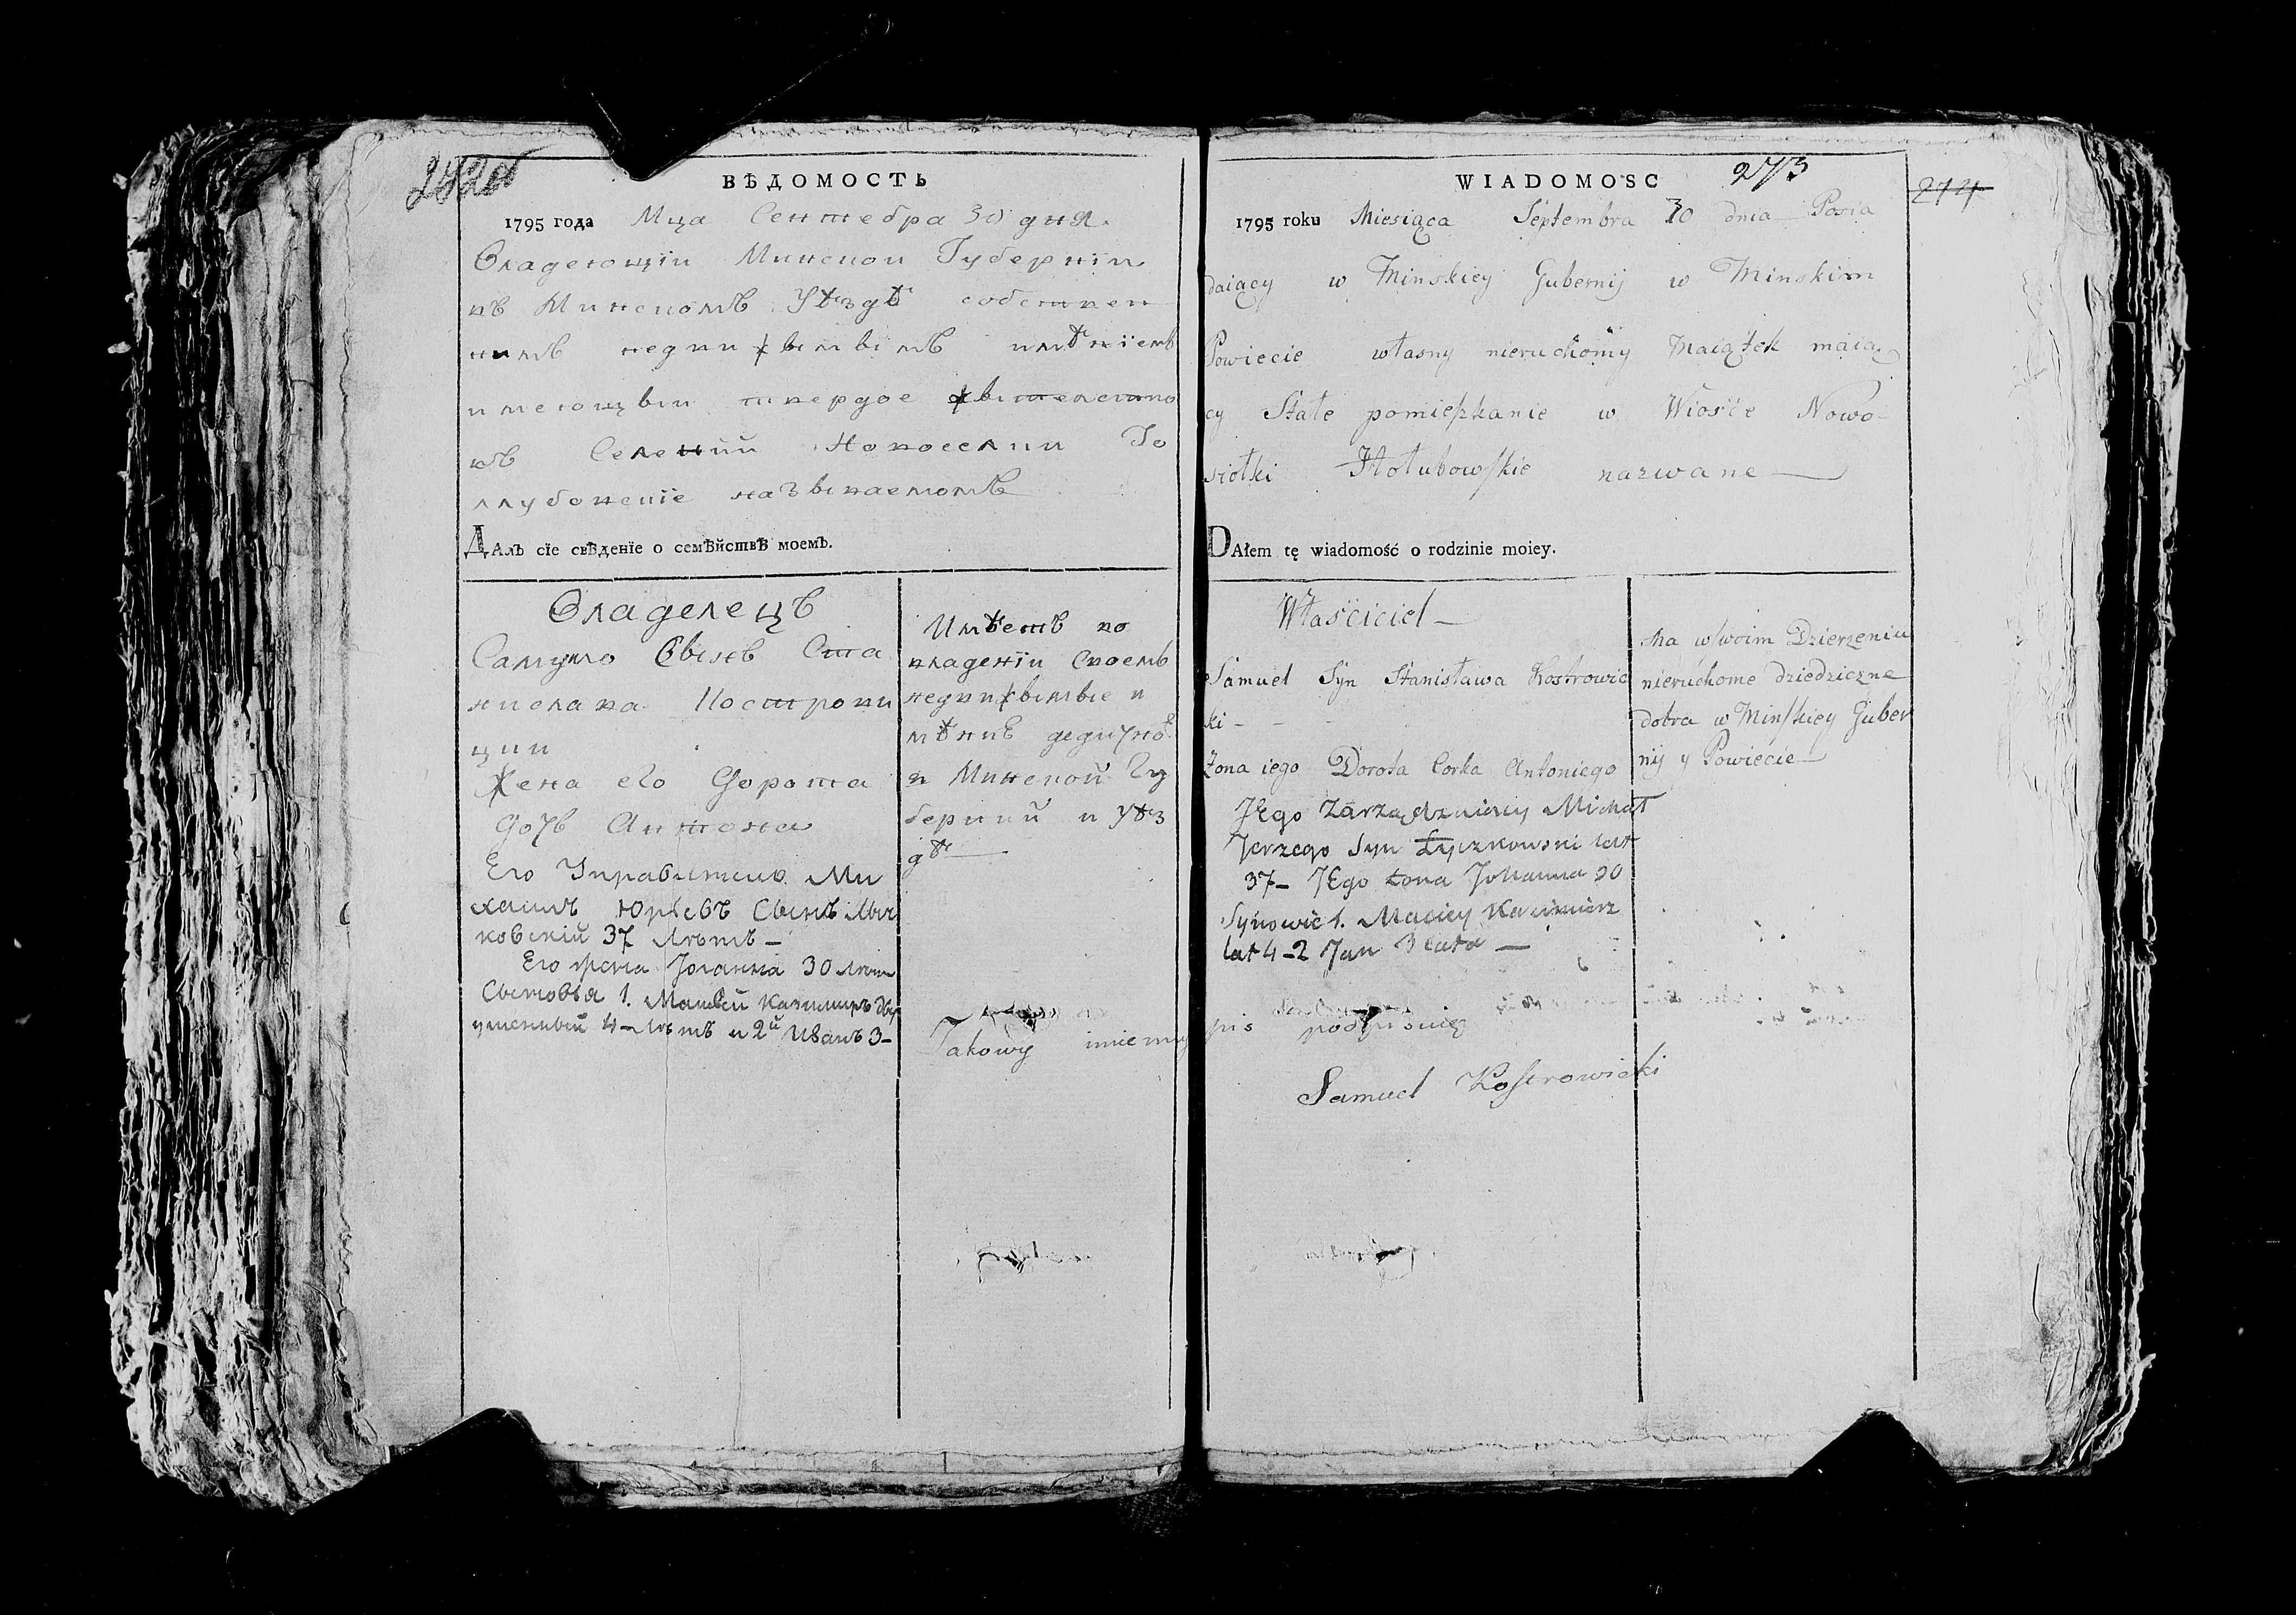 ВѢДОМОСТЬ
1795 года Мца Сентебра 30 дня
Владеющїи Минскои Губернїи
въ Минскомъ Уѣздѣ собствен
нимъ недвижымымъ имѣнїемъ
имеющыи твердое жытелство
въ Селений Новоселки Го
лубовскїе называемомъ
ДАлъ сїе свѣденїе о семѣйствѣ моемъ.
Владелецъ
Самуило Сынъ Ста
нислава Кострови
цки
Жена его Дорота
дочь Антона
Его Управитель Ми
хаилъ Юрьевъ Сынъ Лыч
ковскій 37 Лѣтъ –
Его жена Іоганна 30 лѣтъ
Сыновья 1. Матвей Казимиръ
4 Лѣтъ и 2й Иванъ 3 –
Имѣетъ во
владенїи Своемъ
недвижымые и
мѣние дедичнѣ
в Минской Гу
берний и Уѣз
дѣ
WIADOMOSC 273
274
1795 roku Miesiąca Septembra 30 dnia Posia
daiący w Minskiey Gubernij w Minskim
Powiecie własny nieruchomy Maiątek maią
cy Stałe pomieszkanie w Wiosce Nowo
siołki Hołubowskie nazwane
DAłem tę wiadomość o rodzinie moiey.
Właściciel
Samuel Syn Stanisława Kostrowic
ki
Żona iego Dorota Corka Antoniego
JEgo Zarządzaiący Michał
Jerzego Syn Łyczkowski lat
37 – JEgo żona Johanna 30
Synowie 1. Maciey Kazimierz
lat 4 – 2 Jan 3 lata –
Ma w swoim Dzierżeniu
nieruchome dziedziczne
dobra w Minskiey Guber
nij y Powiecie
Takowy imiennyspis podpisuię
Samuel Kostrowicki